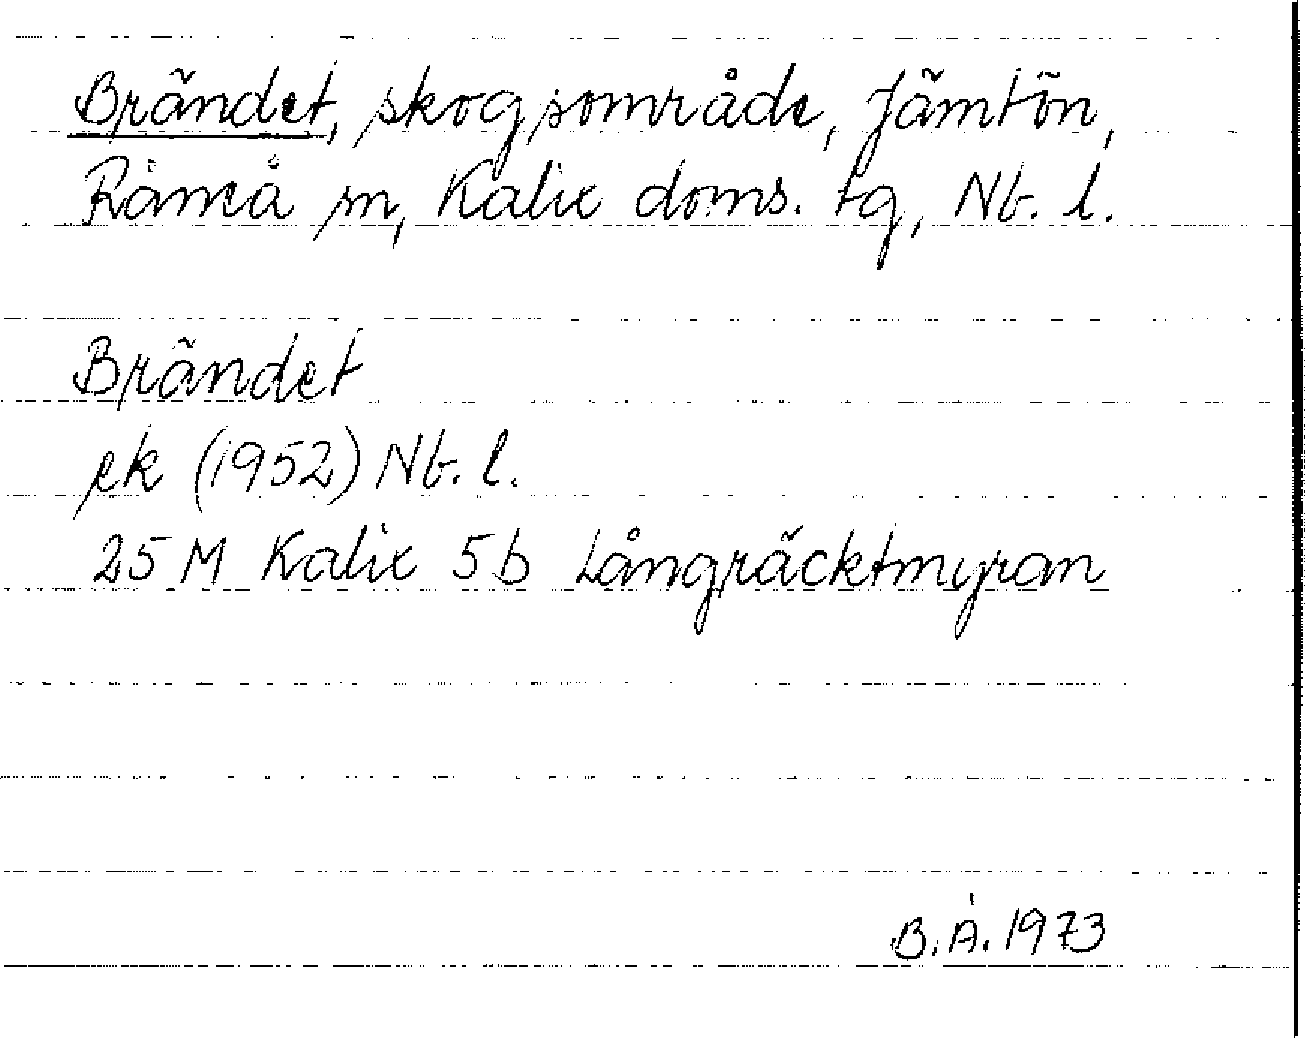 Brändet, skogsområde, Jämtön,
Råneå sn, Kalix doms. tg, Nb. l.
Brändet
ek (1952) Nb. l.
25 M Kalix 5b Långräcktmyran
B. Å. 1973